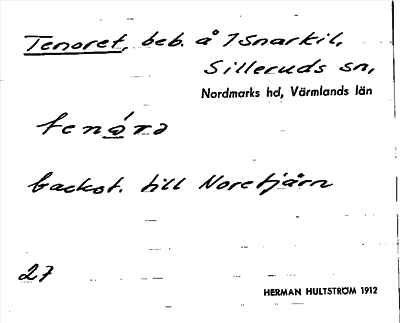 Tenoret, beb. å Isnarkil,
Silleruds sn,
Nordmarks hd, Värmlands län
tenǻrə
backst. till Noretjärn
27
HERMAN HULTSTRÖM 1912